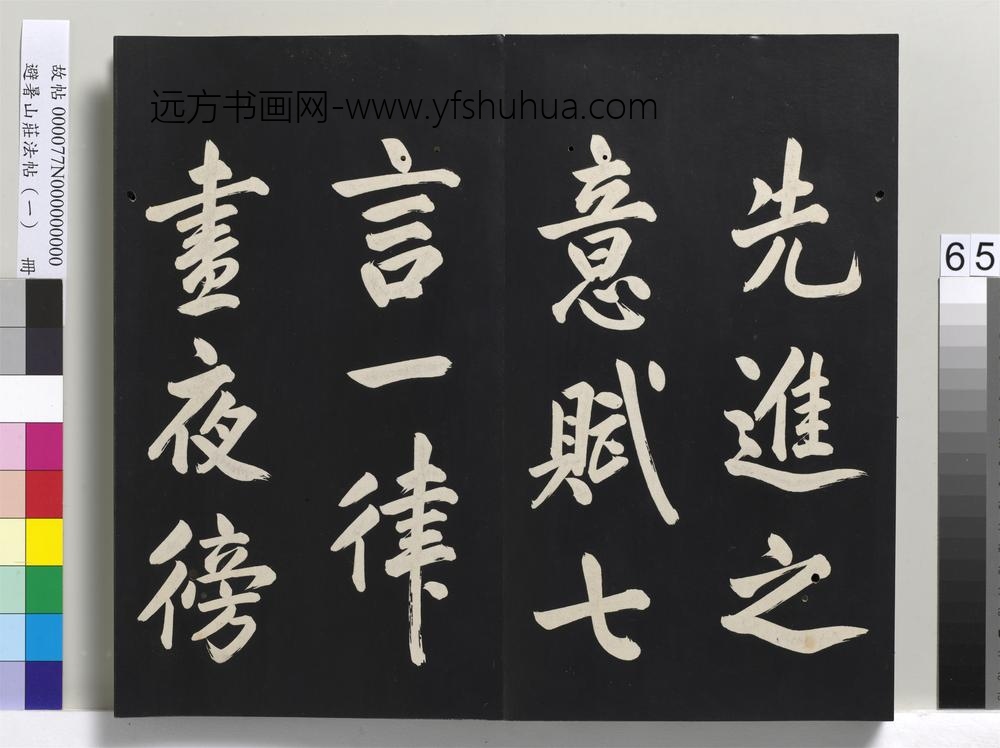 先進之
意賦七
言一律
晝夜徬
远方书画网-www.yfshuhua.com
故帖 000077N000000000
避暑山莊法帖（一） 冊
65